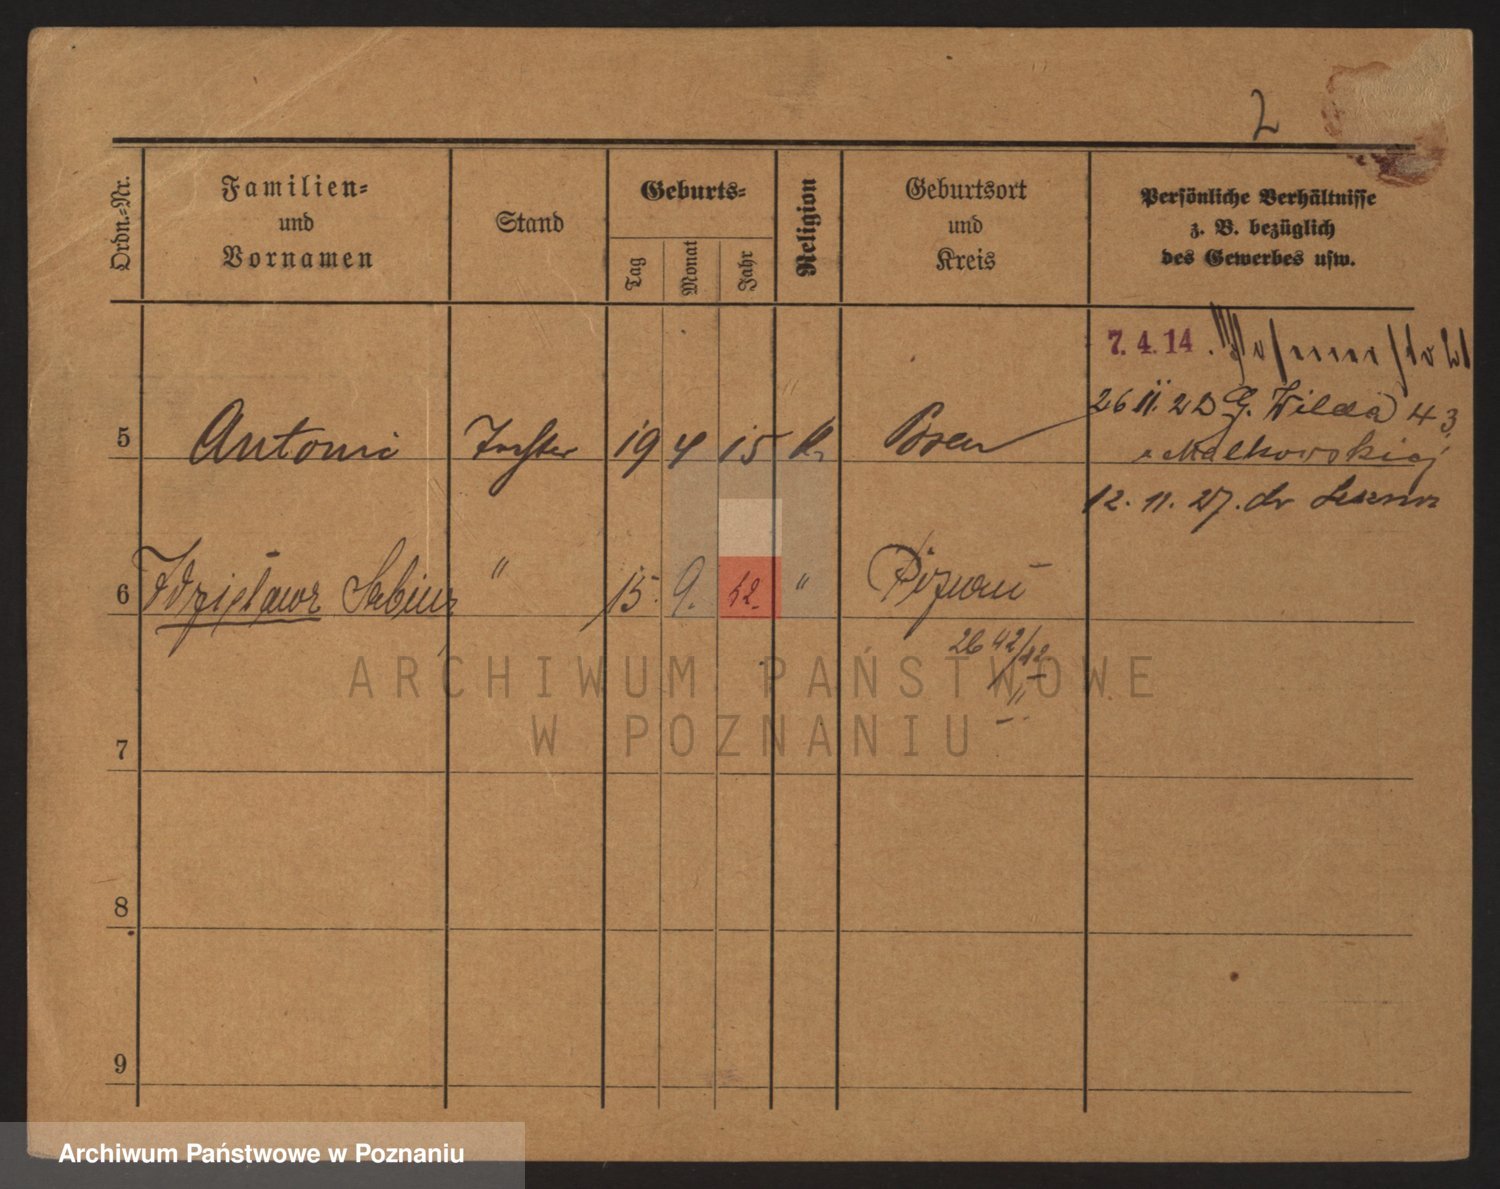 2
Ordn.=Nr.
Familien=
und
Vornamen
Stand
Geburts=
Tag
Monat
Jahr
Religion
Geburtsort
und
Kreis
Persönliche Verhältnisse
z. B. bezüglich
des Gewerbes usw.
7. 4. 14
26 11. 22 G. Wilda 43
5 Antoni 19 4 15 K. Posen
Malkowskiej
12. 11. 27.
6 Zdzisław Sabin " 15. 9. 12. " Poznań
2642/12
ARCHIWUM PAŃSTWOWE
W POZNANIU
7
8
9
Archiwum Państwowe w Poznaniu